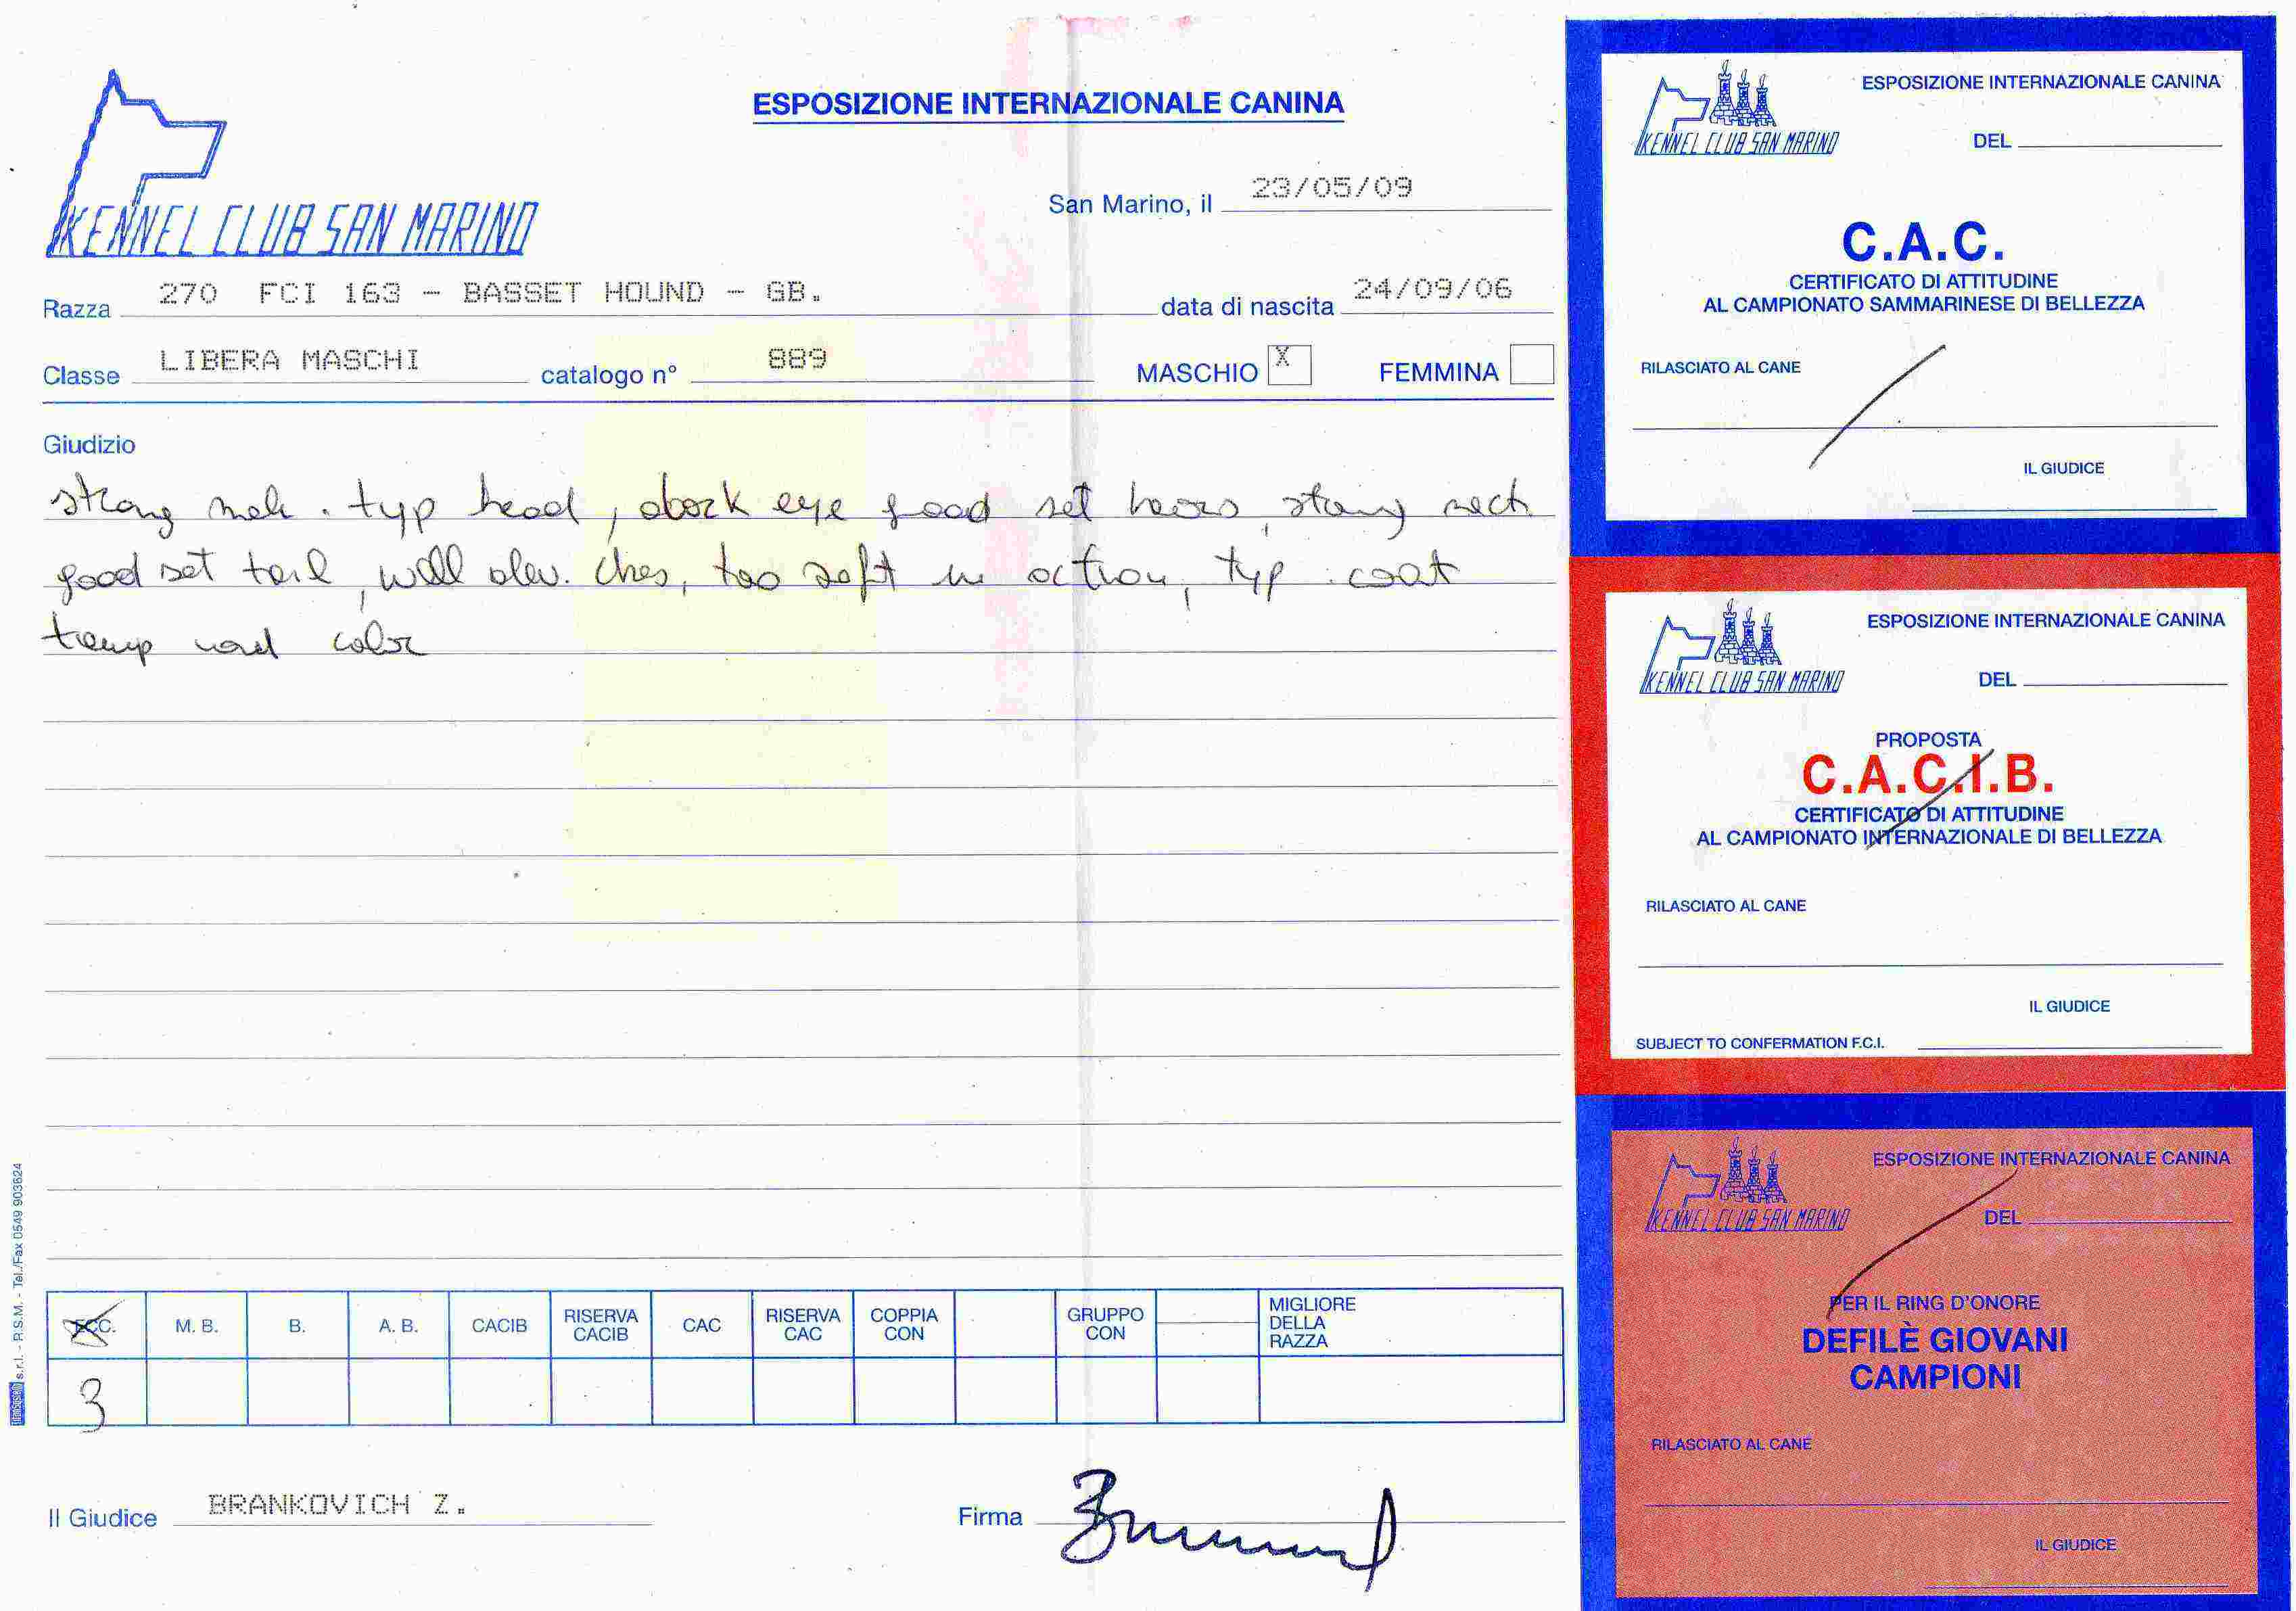 ESPOSIZIONE INTERNAZIONALE CANINA
KENNEL CLUB SAN MARINO
San Marino, il 23/05/09
Razza 270 FCI 163 - BASSET HOUND - GB. data di nascita 24/09/06
Classe LIBERA MASCHI catalogo n° 889 MASCHIO X FEMMINA
Giudizio
strong male. typ head, dark eye good set, strong neck
good set tail, well dev. ches, too soft in action, typ. coat
temp and color
ECC. M. B. B. A. B. CACIB RISERVA CACIB CAC RISERVA CAC COPPIA CON GRUPPO CON MIGLIORE DELLA RAZZA
3
Il Giudice BRANKOVICH Z. Firma
s.r.l. - P.S.M. - Tel./Fax 0549 903624
ESPOSIZIONE INTERNAZIONALE CANINA
KENNEL CLUB SAN MARINO
DEL
C.A.C.
CERTIFICATO DI ATTITUDINE
AL CAMPIONATO SAMMARINESE DI BELLEZZA
RILASCIATO AL CANE
IL GIUDICE
ESPOSIZIONE INTERNAZIONALE CANINA
KENNEL CLUB SAN MARINO
DEL
PROPOSTA
C.A.C.I.B.
CERTIFICATO DI ATTITUDINE
AL CAMPIONATO INTERNAZIONALE DI BELLEZZA
RILASCIATO AL CANE
IL GIUDICE
SUBJECT TO CONFERMATION F.C.I.
ESPOSIZIONE INTERNAZIONALE CANINA
KENNEL CLUB SAN MARINO
DEL
PER IL RING D'ONORE
DEFILÈ GIOVANI
CAMPIONI
RILASCIATO AL CANE
IL GIUDICE